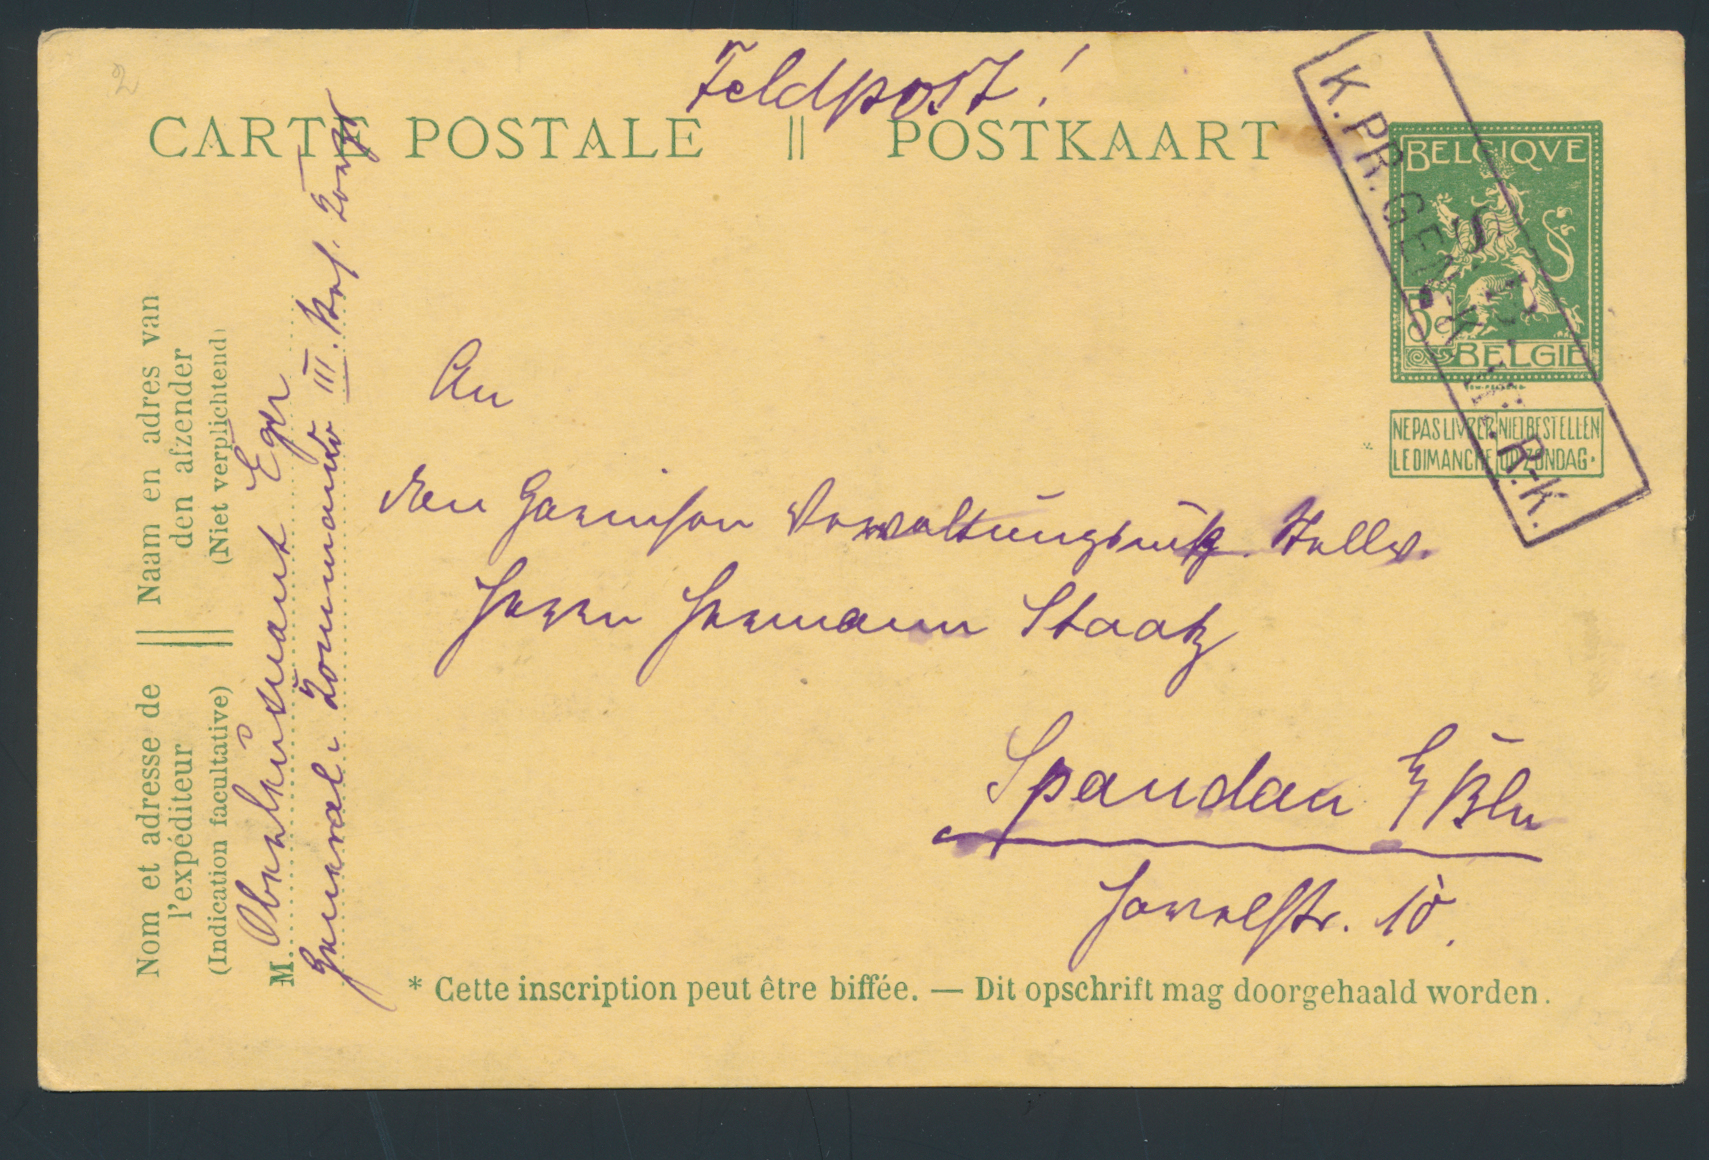 2
Feldpost!
CARTE POSTALE || POSTKAART
K.PR.GEN.K III.R.K.
S.B.
BELGIQVE
5c
BELGIE
NE PAS LIVRER NIET BESTELLEN
LE DIMANCHE OP ZONDAG.
*
Naam en adres van
den afzender
(Niet verplichtend)
Nom et adresse de
l'expéditeur
(Indication facultative)
M. Oberleutnant Eger
General-Kommando III. Res. Korps
An
den Garnison Verwaltungs Stellv.
Herrn Hermann Staatz
Spandau b/Bln
Havelstr. 10.
* Cette inscription peut être biffée. — Dit opschrift mag doorgehaald worden.